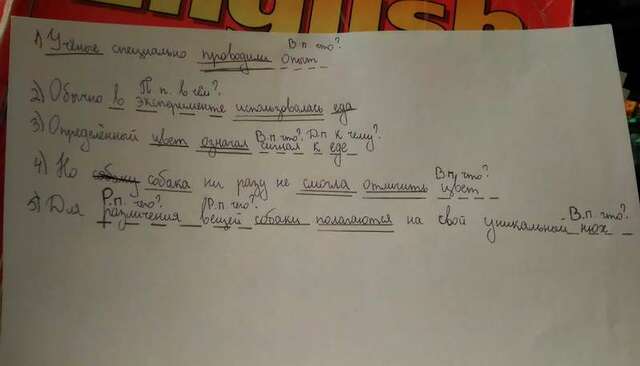 English
В.п что?
1) Учёные специально проводили опыт
П п. в чём?
2) Обычно в эксперименте использовалась еда
В.п что? Д.п к чему?
3) Определённый цвет означал сигнал к еде
В.п. что?
4) Но собаку собака ни разу не смогла отличить цвет
Р.п. чего? Р.п. чего? В.п. что?
5) Для различения вещей собаки полагаются на свой уникальный нюх